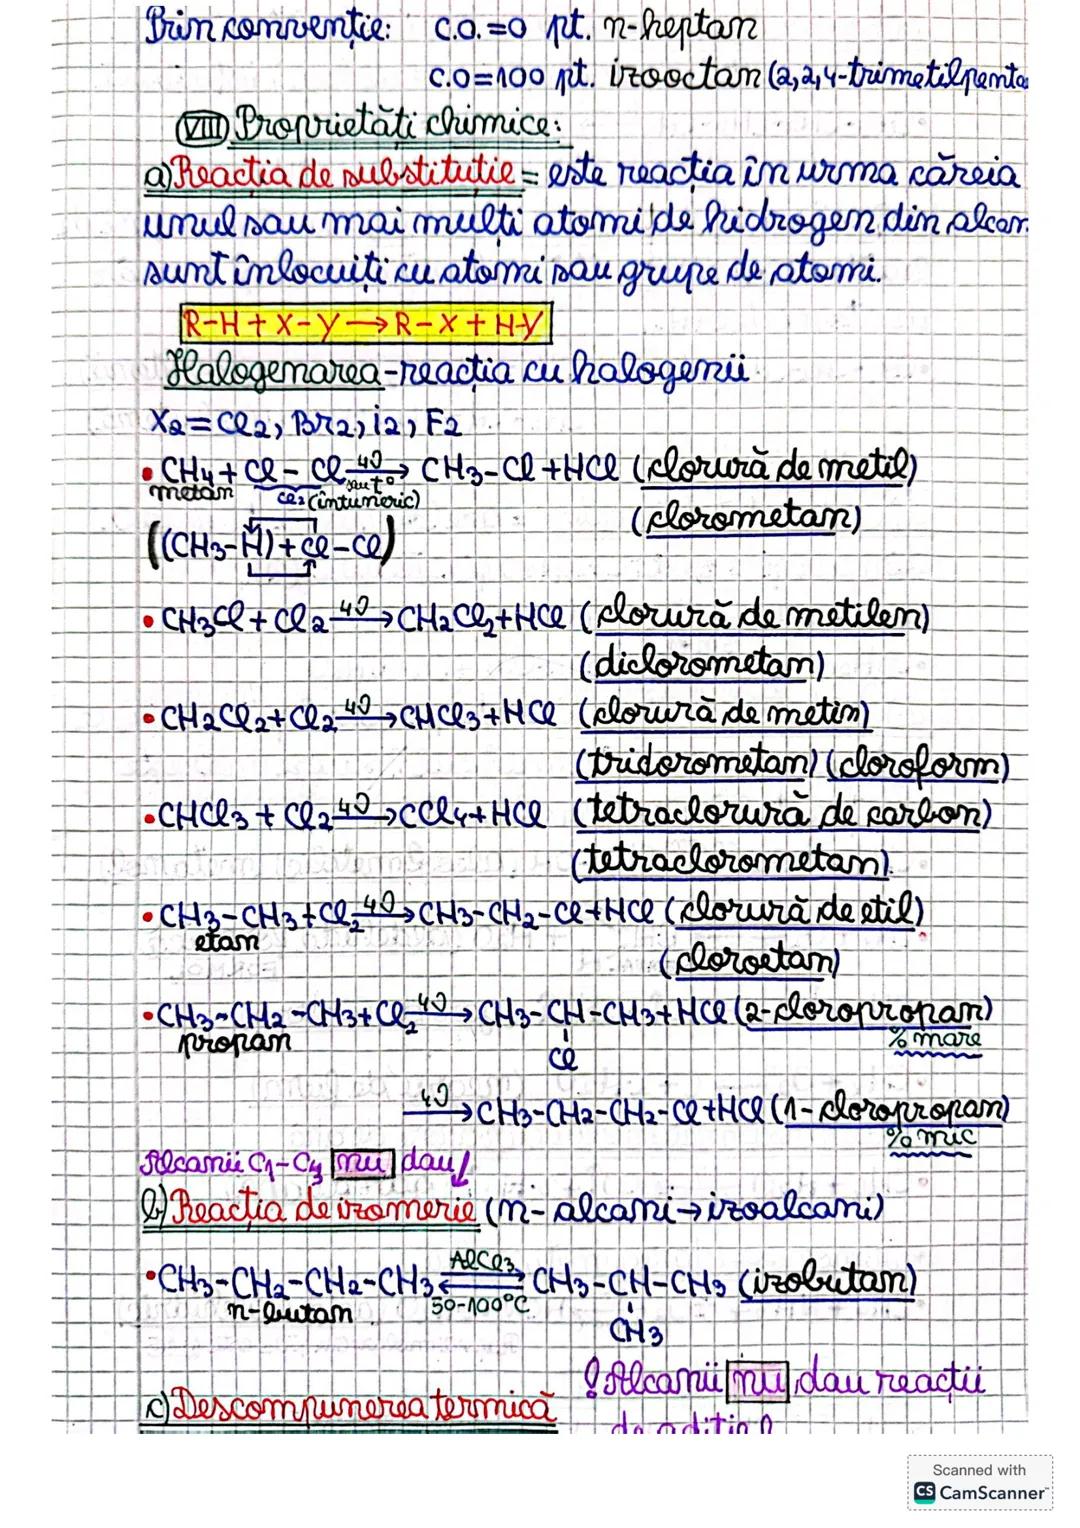 Prin convenție: C.O.=0 pt. n-heptan
C.O=100 pt. izooctan (2,2,4-trimetilpenta
VIII Proprietăți chimice:
a) Reacția de substituție = este reacția în urma căreia
unul sau mai mulți atomi de hidrogen din alcan
sunt înlocuiți cu atomi sau grupe de atomi.
R-H + X-Y → R-X + H-Y
Halogenarea - reacția cu halogenii
X2 = Cl2, Br2, i2, F2
• CH4 + Cl - Cl → CH3-Cl + HCl (clorură de metil)
metan Cl2 sau t° (întuneric)
(clorometan)
((CH3-H) + Cl-Cl)
• CH3Cl + Cl2 → CH2Cl2 + HCl (clorură de metilen)
(diclorometan)
• CH2Cl2 + Cl2 → CHCl3 + HCl (clorură de metin)
(triclorometan) (cloroform)
• CHCl3 + Cl2 → CCl4 + HCl (tetraclorură de carbon)
(tetraclorometan)
• CH3-CH3 + Cl2 → CH3-CH2-Cl + HCl (clorură de etil)
etan
(cloroetan)
• CH3-CH2-CH3 + Cl2 → CH3-CH-CH3 + HCl (2-cloropropan)
propan % mare
Cl
→ CH3-CH2-CH2-Cl + HCl (1-cloropropan)
% mic
Alcanii C1-C3 nu dau ↓
b) Reacția de izomerie (n-alcani → izoalcani)
AlCl3
• CH3-CH2-CH2-CH3 ⇌ CH3-CH-CH3 (izobutan)
n-butan 50-100°C
CH3
! Alcanii nu dau reacții
c) Descompunerea termică
de adiție !
Scanned with
CS CamScanner